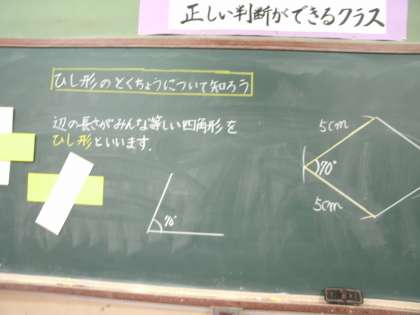 正しい判断ができるクラス
ひし形のとくちょうについて知ろう
辺の長さがみんな等しい四角形を
ひし形といいます.
5cm
70°
70°
5cm